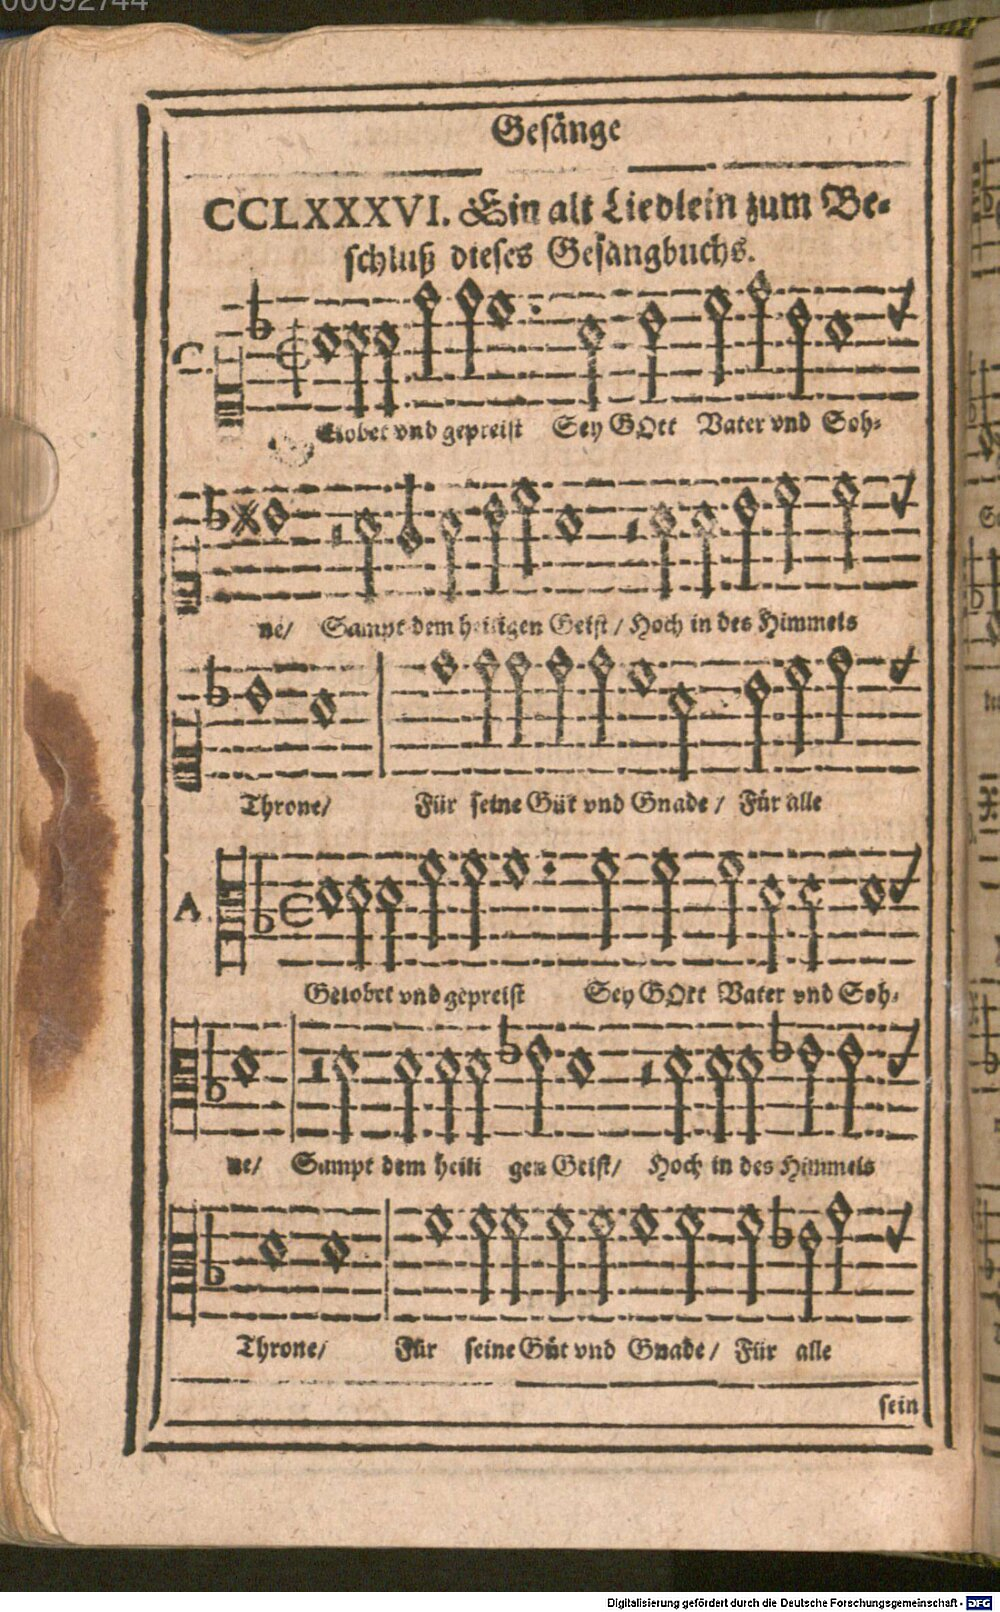 00092744
Gesänge
CCLXXXVI. Ein alt Liedlein zum Be-
schluß dieses Gesangbuchs.
C.
Gelobet vnd gepreist Sey GOtt Vater vnd Soh-
ne/ Sampt dem heiligen Geist/ Hoch in des Himmels
Throne/ Für seine Güt vnd Gnade/ Für alle
A.
Gelobet vnd gepreist Sey GOtt Vater vnd Soh-
ne/ Sampt dem heili gen Geist/ Hoch in des Himmels
Throne/ Für seine Güt vnd Gnade/ Für alle
sein
Digitalisierung gefördert durch die Deutsche Forschungsgemeinschaft - DFG